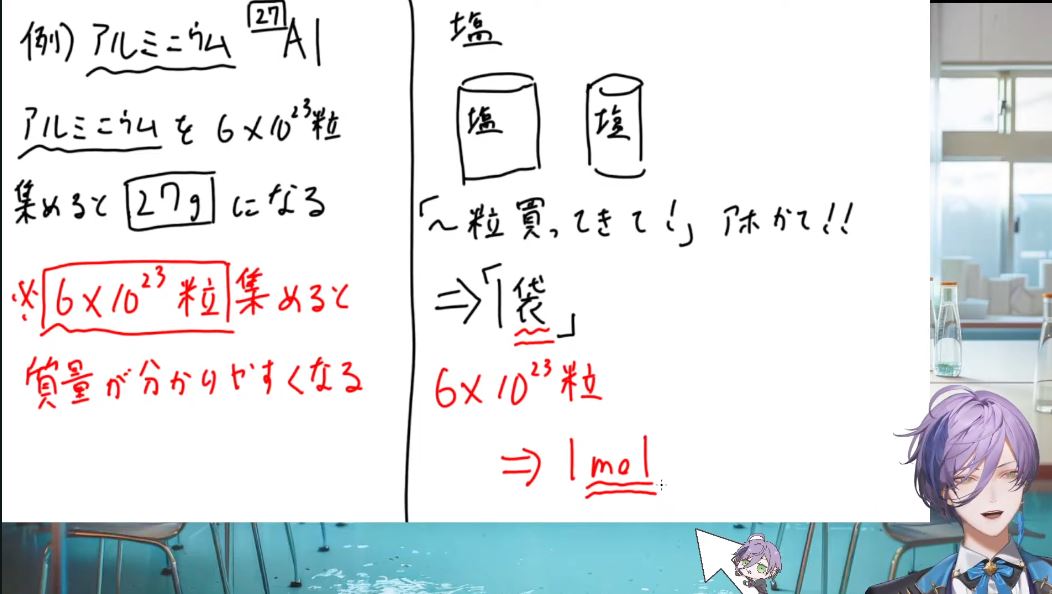 例) アルミニウム ²⁷Al
アルミニウムを 6×10²³粒
集めると 27g になる
※ 6×10²³粒 集めると
質量が分かりやすくなる
塩
塩 塩
「〜粒買ってきて!」アホかて!!
⇒「1袋」
6×10²³粒
⇒ 1mol